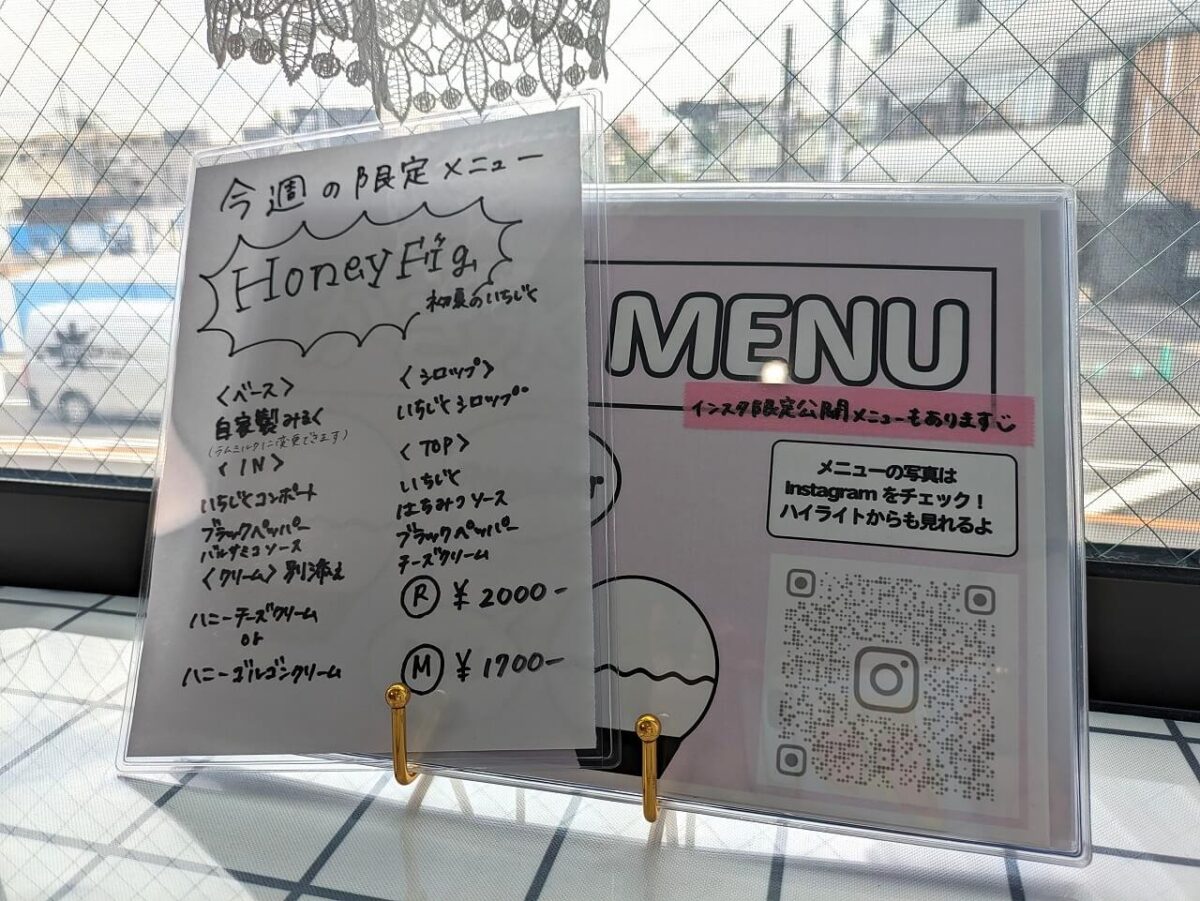 今週の限定メニュー
HoneyFig
初夏のいちじく
〈ベース〉
自家製みるく
(ラムミルクに変更できます)
〈IN〉
いちじくコンポート
ブラックペッパー
バルサミコソース
〈クリーム〉別添え
ハニーチーズクリーム
or
ハニーゴルゴンクリーム
〈シロップ〉
いちじくシロップ
〈TOP〉
いちじく
はちみつソース
ブラックペッパー
チーズクリーム
Ⓡ ¥2000-
Ⓜ ¥1700-
MENU
インスタ限定公開メニューもあります
メニューの写真は
Instagram をチェック!
ハイライトからも見れるよ